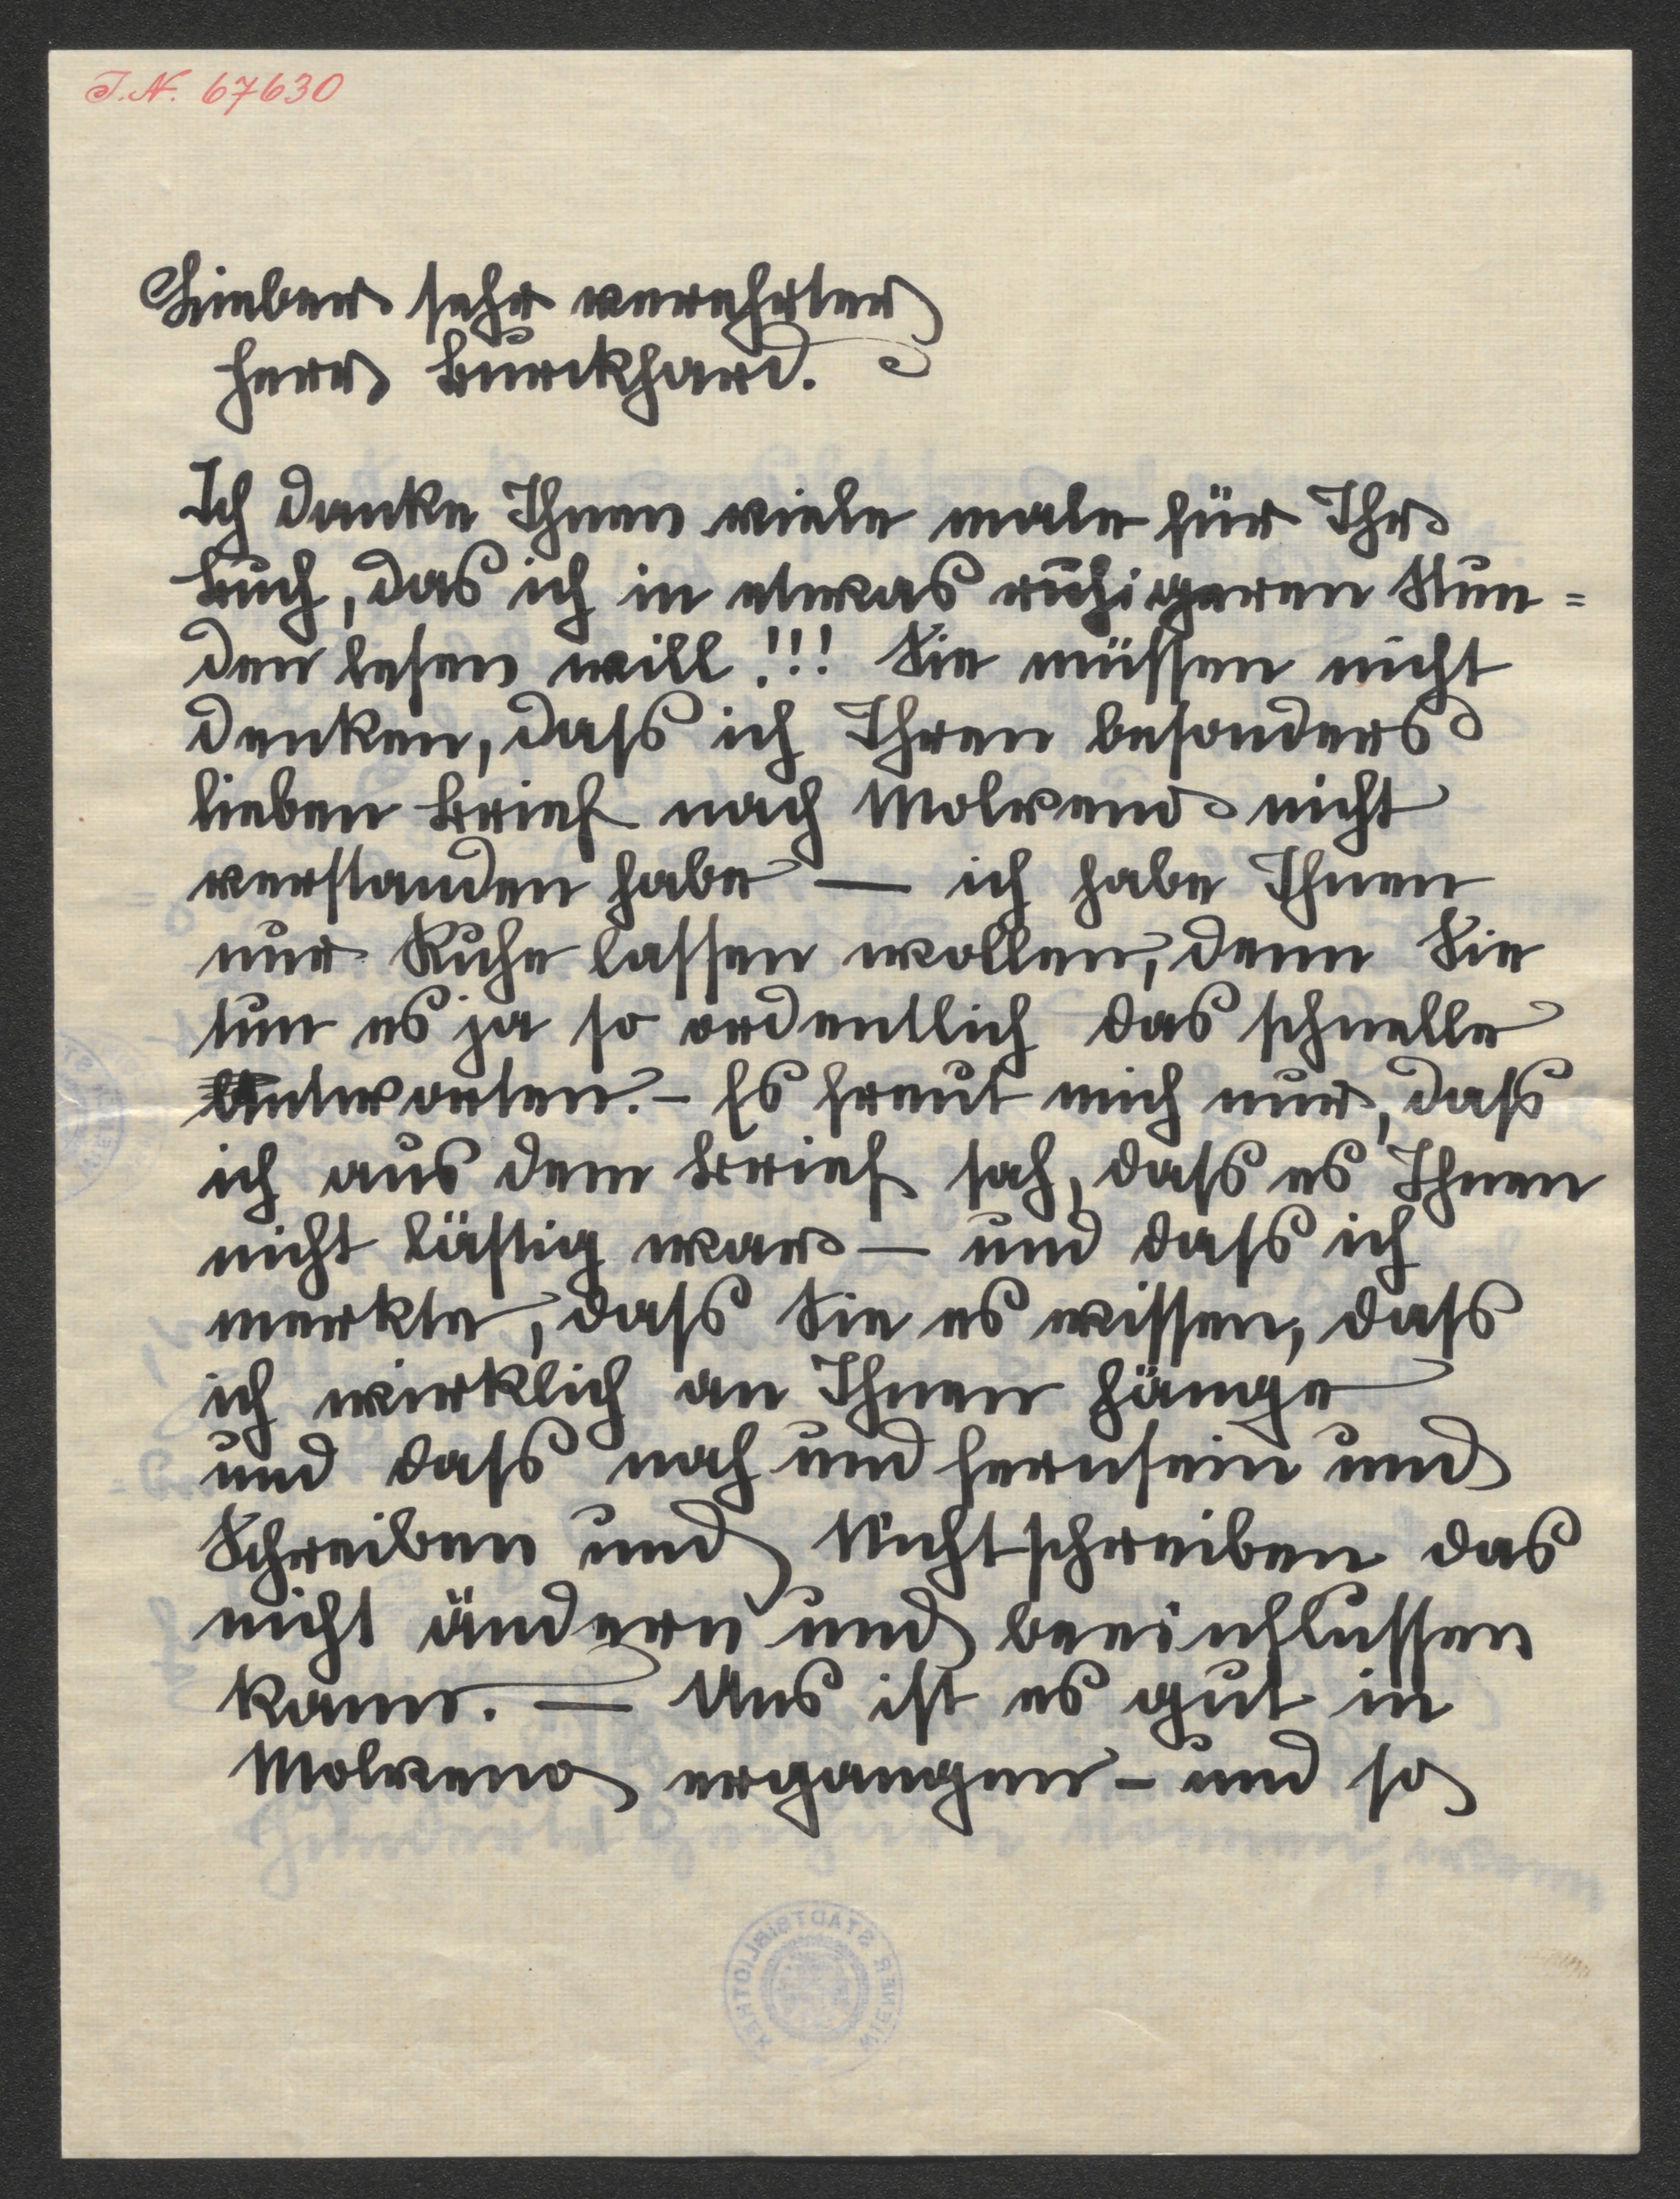 J.N. 67630
Lieber sehr verehrter
Herr Burckhard.
Ich danke Ihnen viele male für Ihr
Buch, das ich in etwas ruhigeren Stun=
den lesen will!!! Sie müssen nicht
denken, dass ich Ihren besonders
lieben Brief nach Molveno nicht
verstanden habe — ich habe Ihnen
nur Ruhe lassen wollen, denn Sie
tun es ja so ordentlich das schnelle
Antworten. – Es freut mich nur, dass
ich aus dem Brief sah, dass es Ihnen
nicht lästig war — und dass ich
merkte, dass Sie es wissen, dass
ich wirklich an Ihnen hänge
und dass nah und fernsein und
Schreiben und Nichtschreiben das
nicht ändern und beeinflussen
kann. — Uns ist es gut in
Molveno ergangen – und so
WIENER STADTBIBLIOTHEK